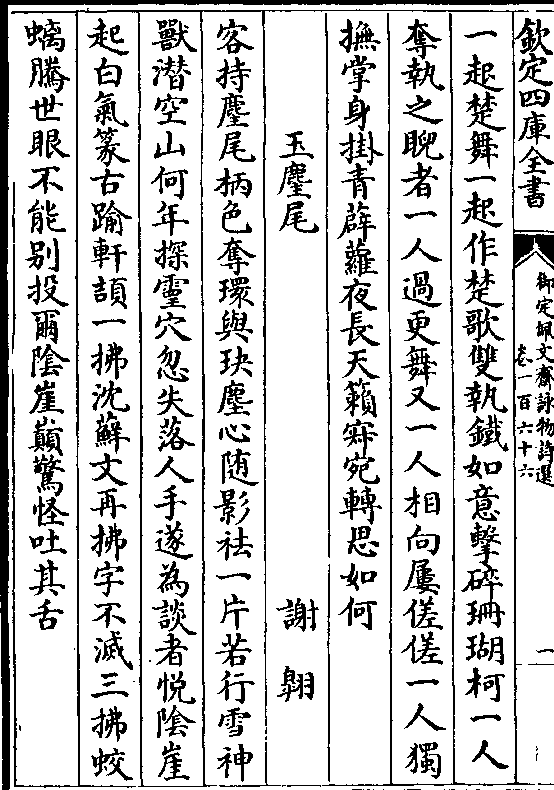 欽定四庫全書
御定佩文齋詠物詩選
卷一百六十六
一
一起楚舞一起作楚歌雙執鐵如意擊碎珊瑚柯一人
奪執之睨者一人過更舞又一人相向屢傞傞一人獨
撫掌身掛青薜蘿夜長天籟寂宛轉思如何
玉麈尾 謝翱
客持麈尾柄色奪環與玦塵心随影祛一片若行雪神
獸潜空山何年探靈穴忽失落人手遂為談者悦陰崖
起白氣篆古踰軒頡一拂沈蘚文再拂字不滅三拂蛟
螭騰世眼不能别投爾陰崖巔驚怪吐其舌